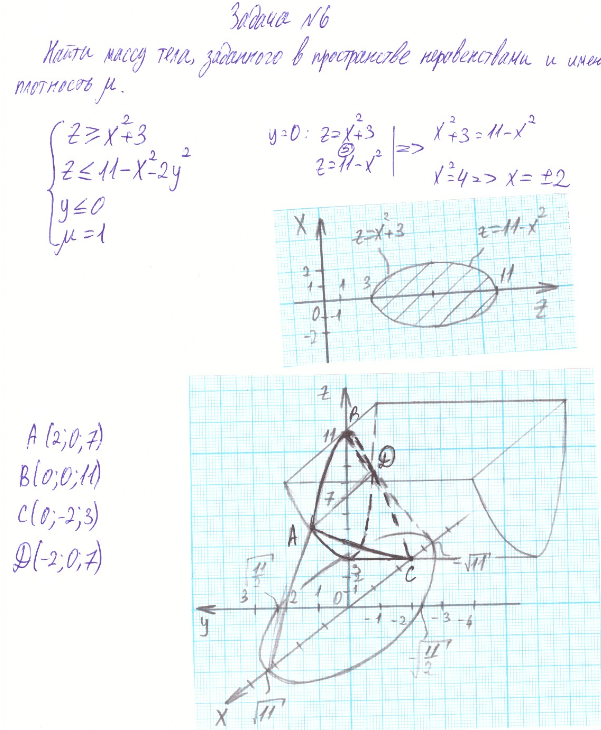 Задача №6
Найти массу тела, заданного в пространстве неравенствами и имею
плотность μ.
z ≥ x²+3
z ≤ 11-x²-2y²
y ≤ 0
μ = 1
y=0: z=x²+3
z=11-x²
=> x²+3=11-x²
x²=4 => x=±2
X
z=x²+3
z=11-x²
2
1
1
3
11
0
-1
-2
Z
z
B
11
A(2;0;7)
B(0;0;11)
C(0;-2;3)
D(-2;0;7)
D
7
A
3
C
-√11
√11/2
3
2
1
2
1
0
-1
-2
-3
-4
y
-√11/2
√11
X